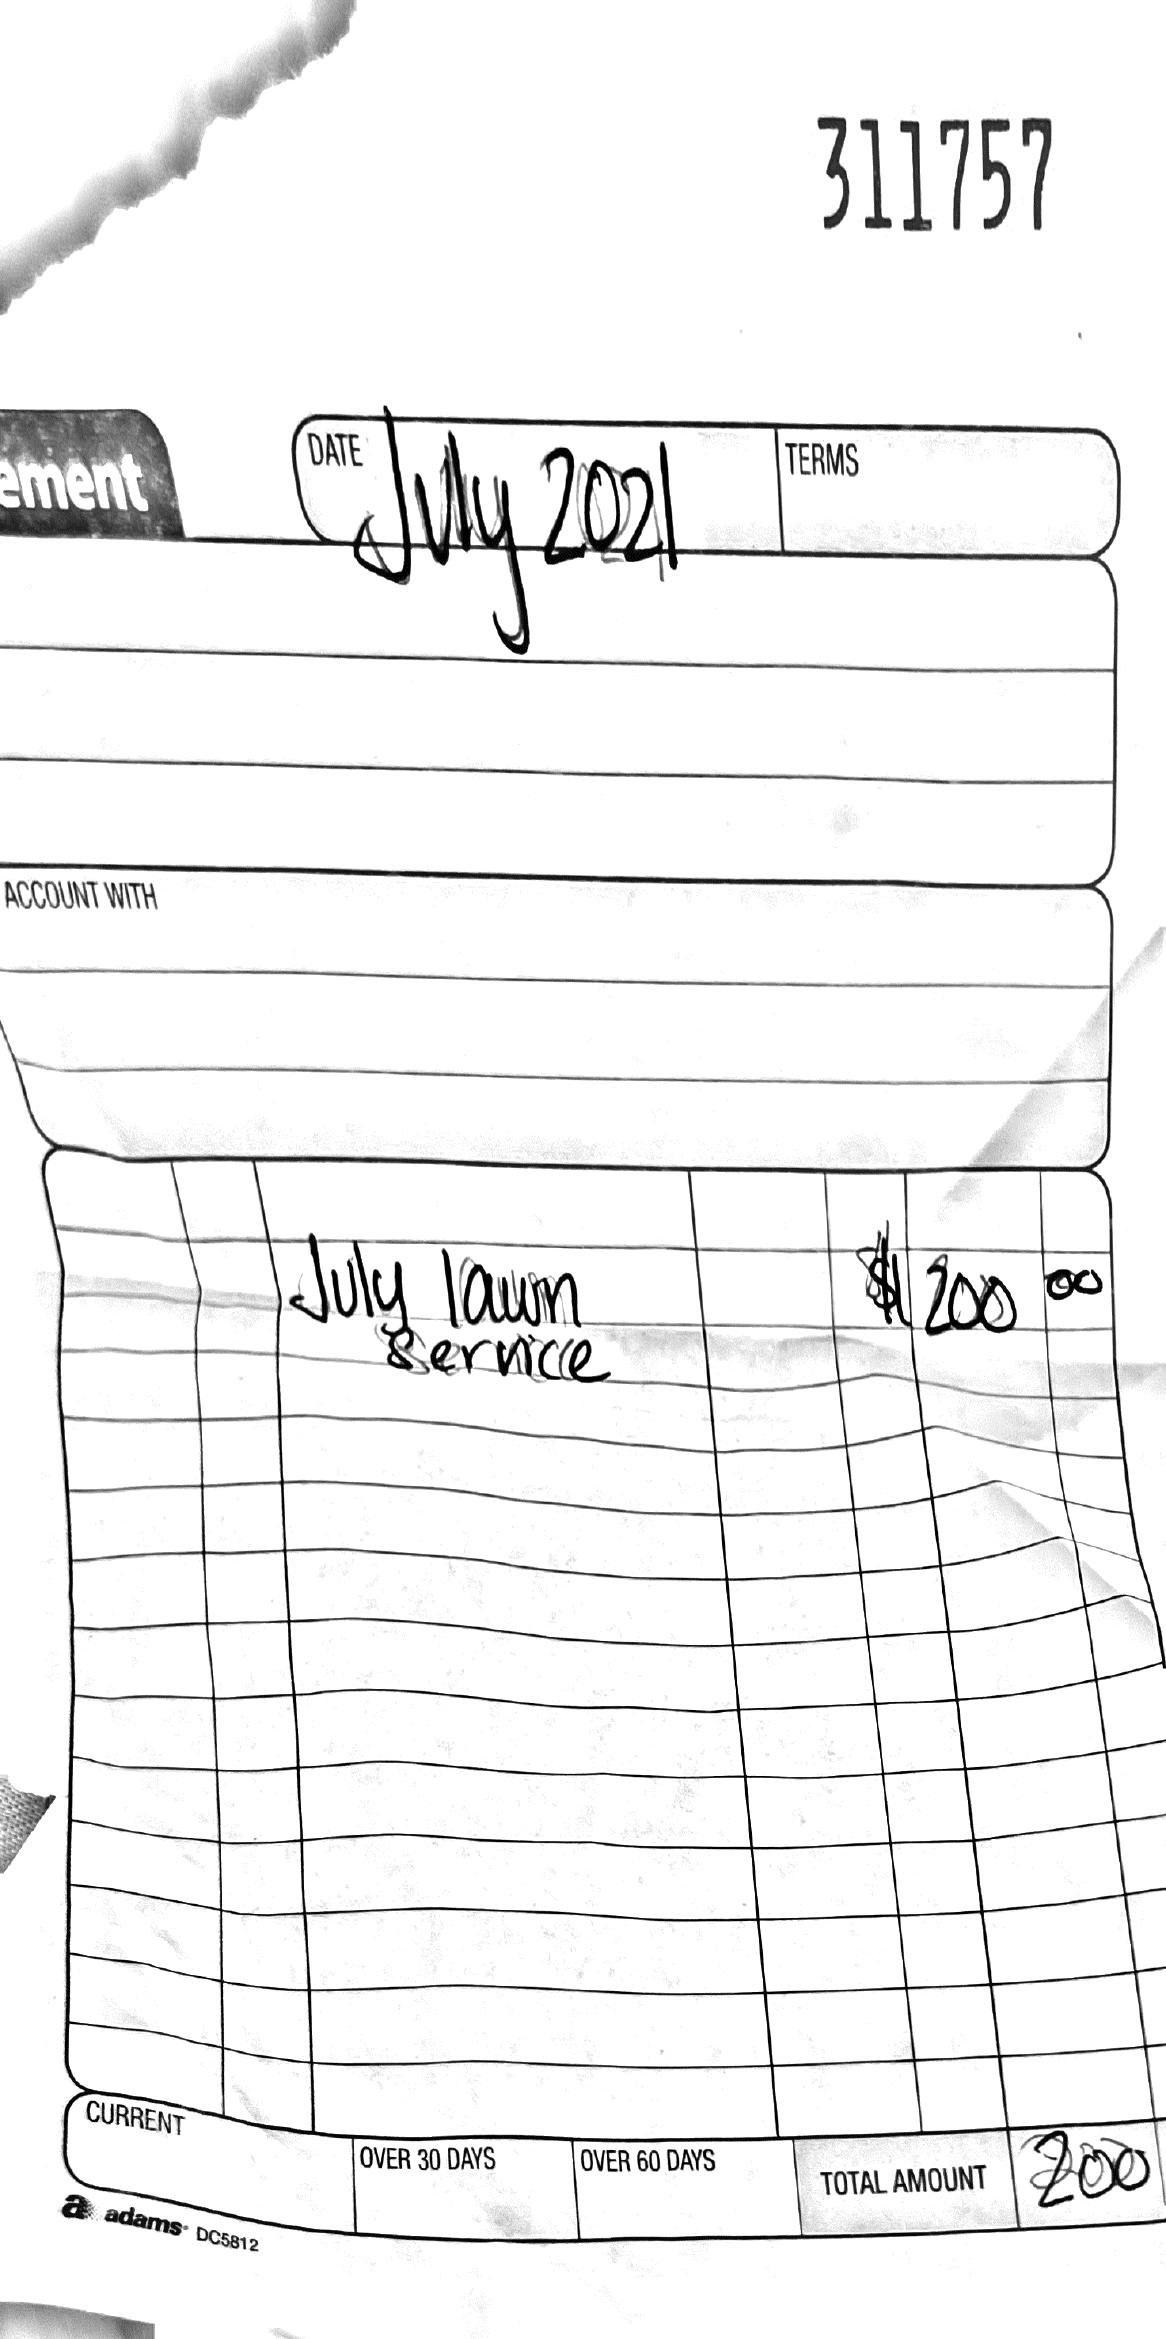 311757
ement
DATE July 2021 TERMS
ACCOUNT WITH
July lawn $ 200 00
service
CURRENT OVER 30 DAYS OVER 60 DAYS TOTAL AMOUNT 200
a adams DC5812